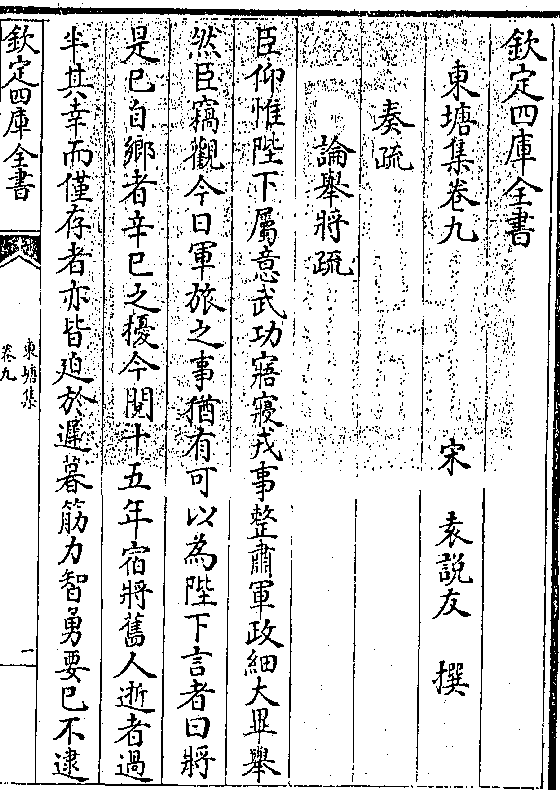 欽定四庫全書
東塘集卷九
宋 袁說友 撰
奏疏
論舉將疏
臣仰惟陛下屬意武功寤寐戎事整肅軍政細大畢舉
然臣竊觀今日軍旅之事猶有可以為陛下言者曰將
是已自鄉者辛巳之擾今閱十五年宿將舊人逝者過
半其幸而僅存者亦皆迫於遲暮筋力智勇要已不逮
欽定四庫全書
東塘集
卷九
一